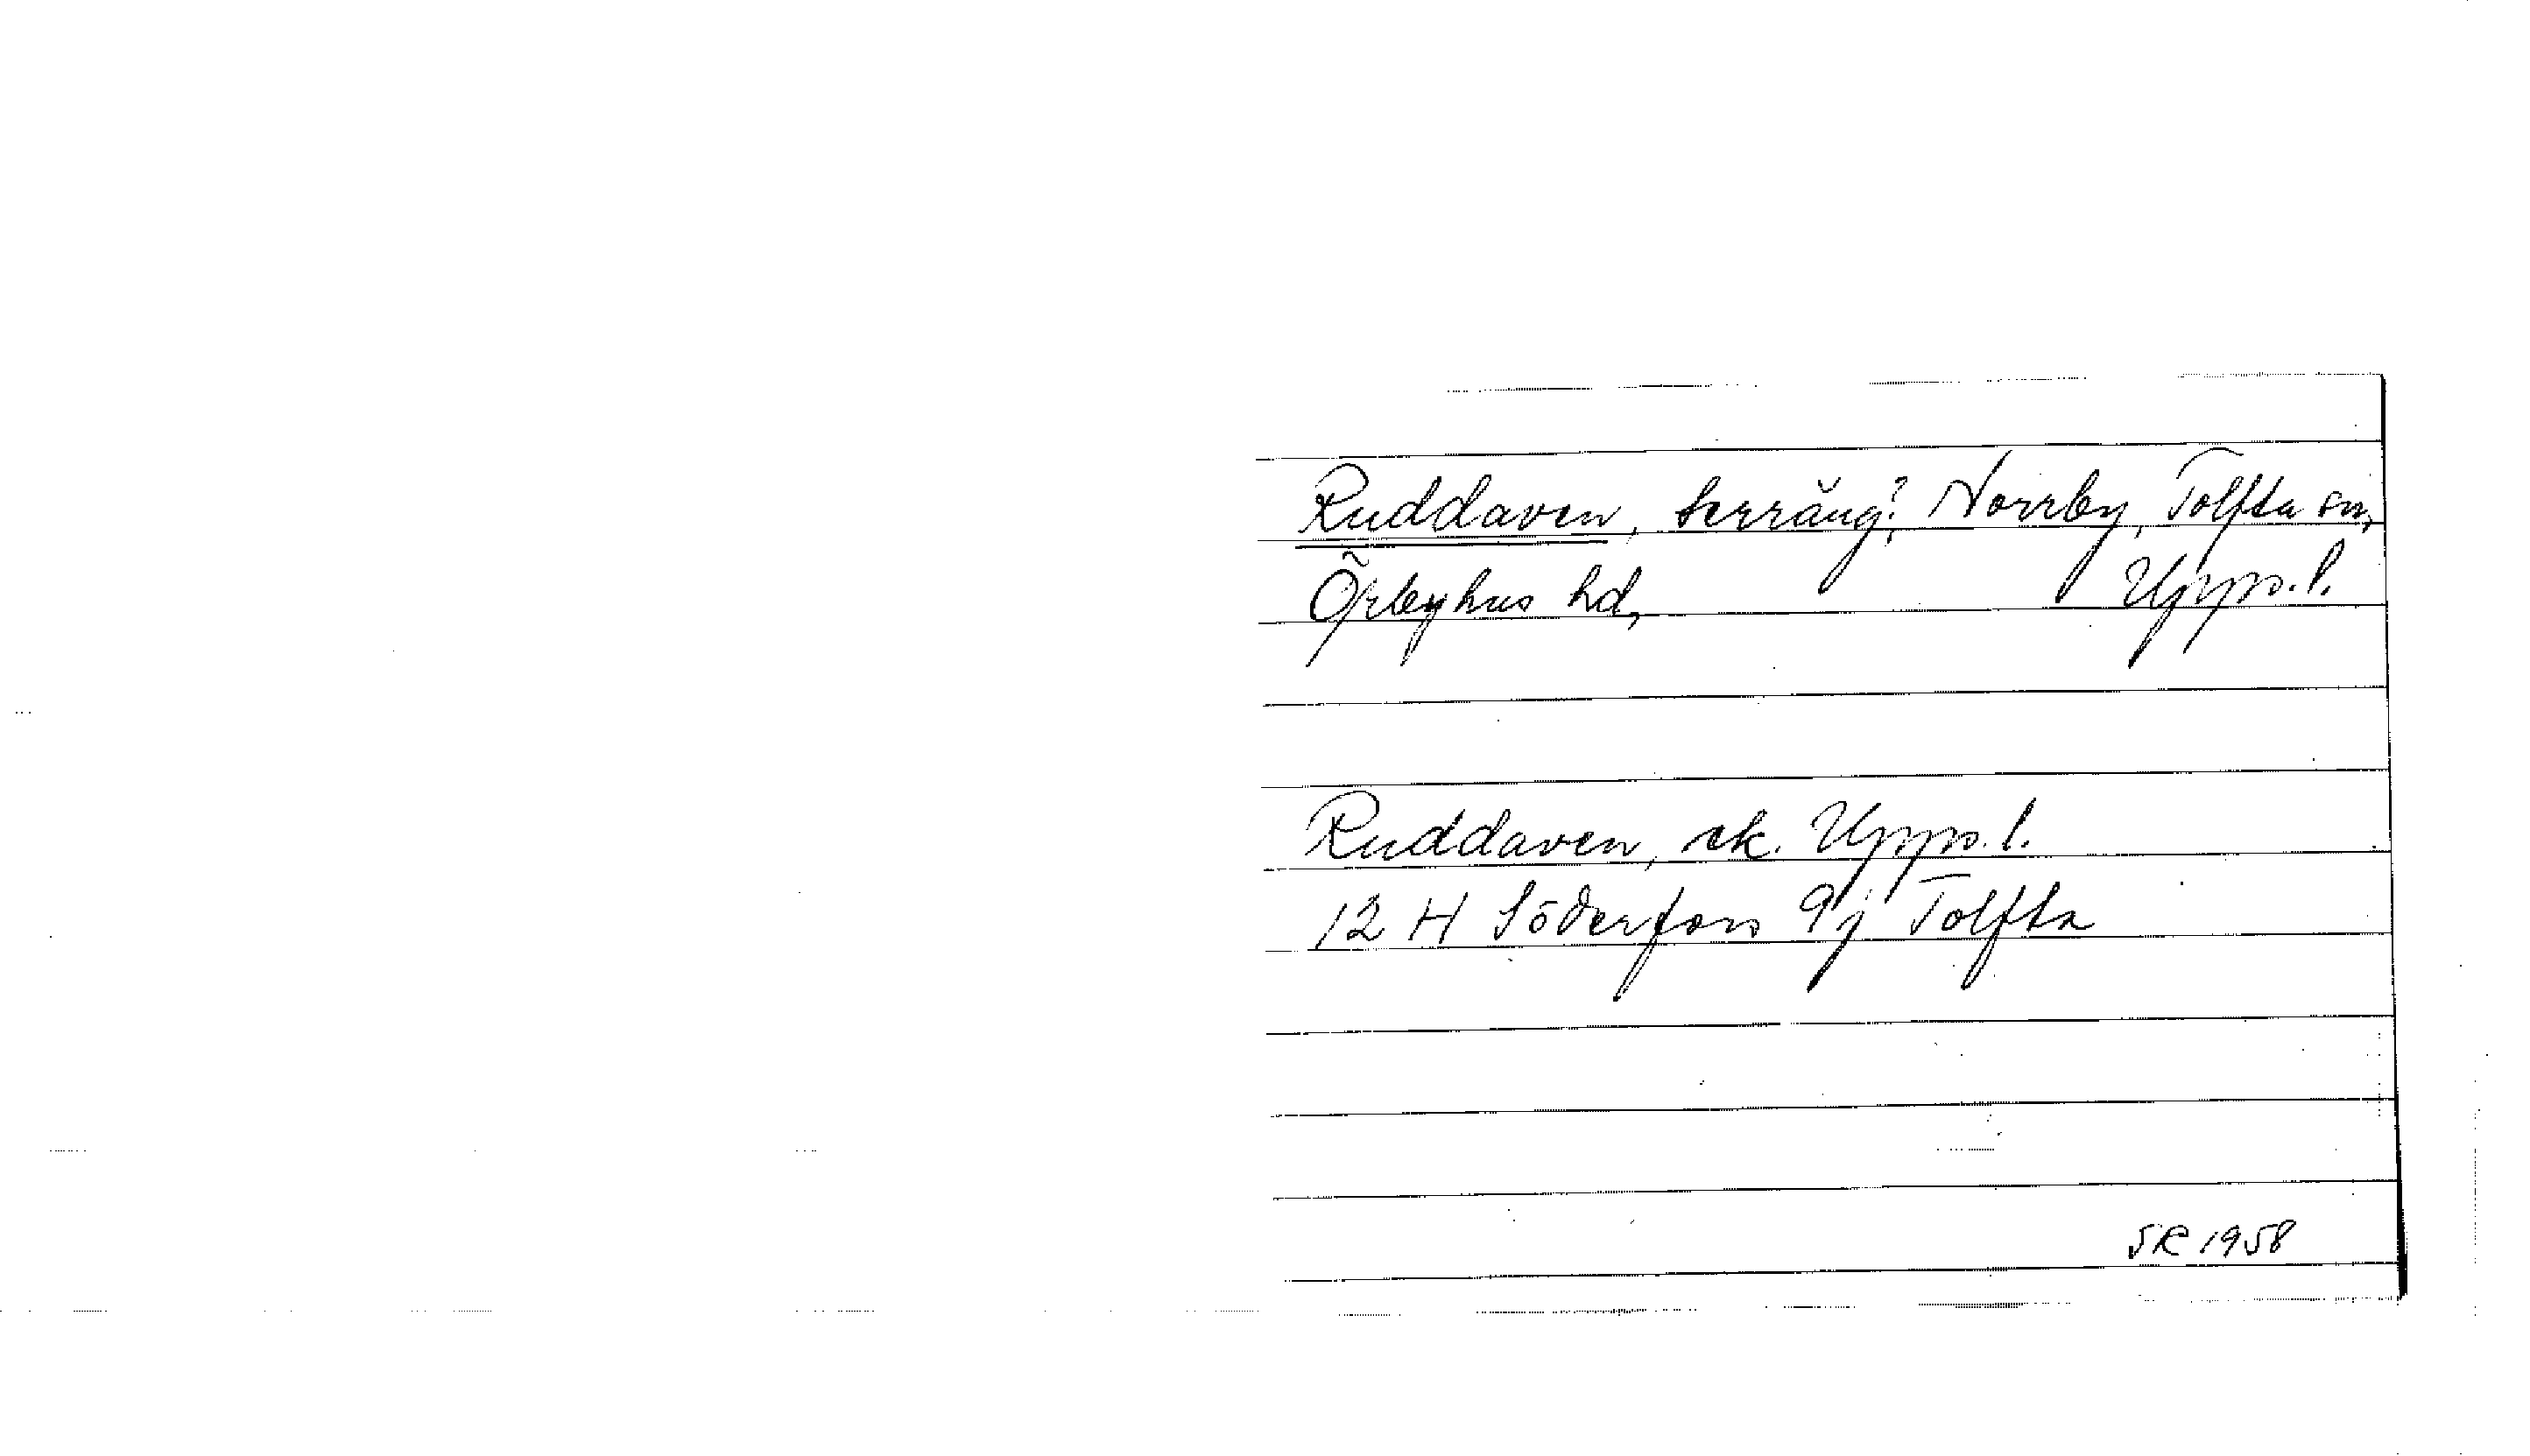 Ruddaven, terräng?, Norrby, Tolfta sn,
Örbyhus hd, Upps. l.
Ruddaven, ek. Upps. l.
12 H Söderfors 9j Tolfta
SR 1958